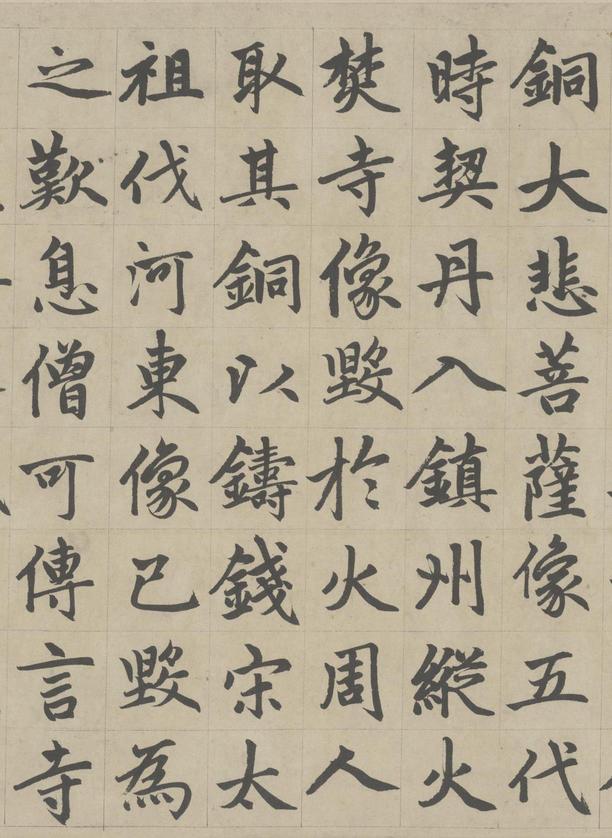 銅大悲菩薩像五代
時契丹入鎮州縱火
焚寺像毀於火周人
取其銅以鑄錢宋太
祖伐河東像已毀為
之歎息僧可傳言寺